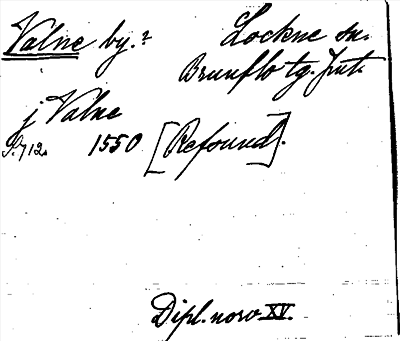 Valne by.? Lockne sn.
Brunflo tg. Jmt.
j Valne
S. 712. 1550 [Refsund].
Dipl. norv. XV.